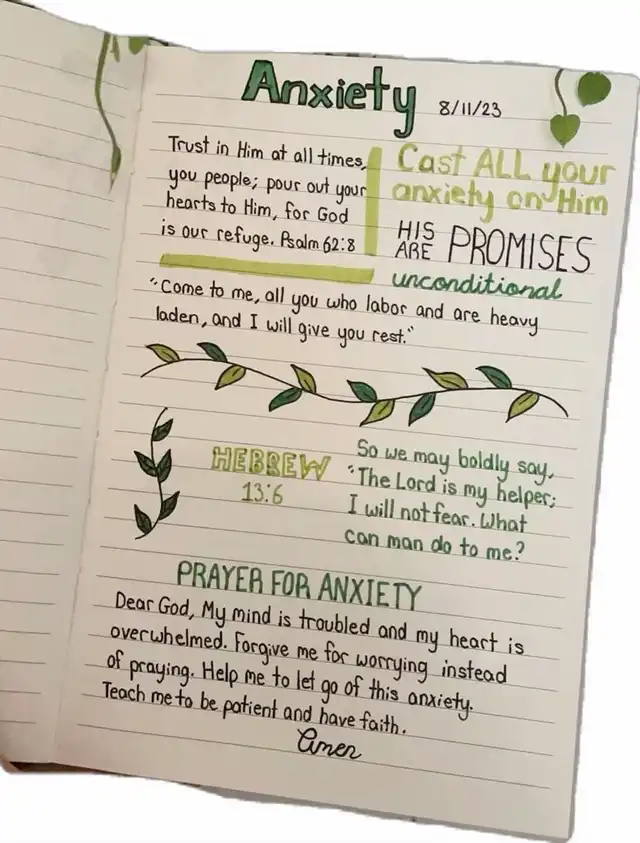 Anxiety 8/11/23
Trust in Him at all times,
you people; pour out your
hearts to Him, for God
is our refuge. Psalm 62:8
Cast ALL your
anxiety on Him
HIS
ARE PROMISES
unconditional
"Come to me, all you who labor and are heavy
laden, and I will give you rest."
HEBREW
13:6
So we may boldly say,
"The Lord is my helper;
I will not fear. What
can man do to me?
PRAYER FOR ANXIETY
Dear God, My mind is troubled and my heart is
overwhelmed. Forgive me for worrying instead
of praying. Help me to let go of this anxiety.
Teach me to be patient and have faith.
Amen